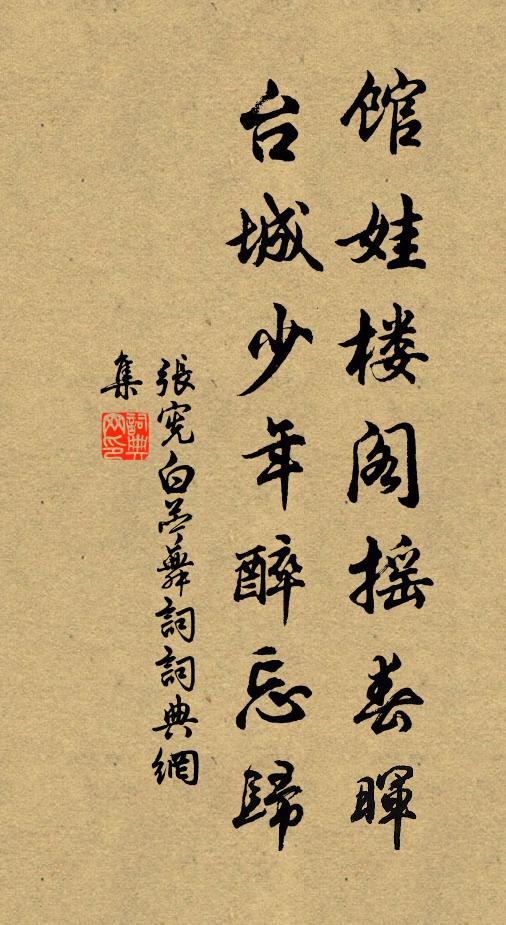 馆娃楼阁摇春暉
台城少年醉忘歸
張宪白苎舞詞詞典網
集
詞典网印